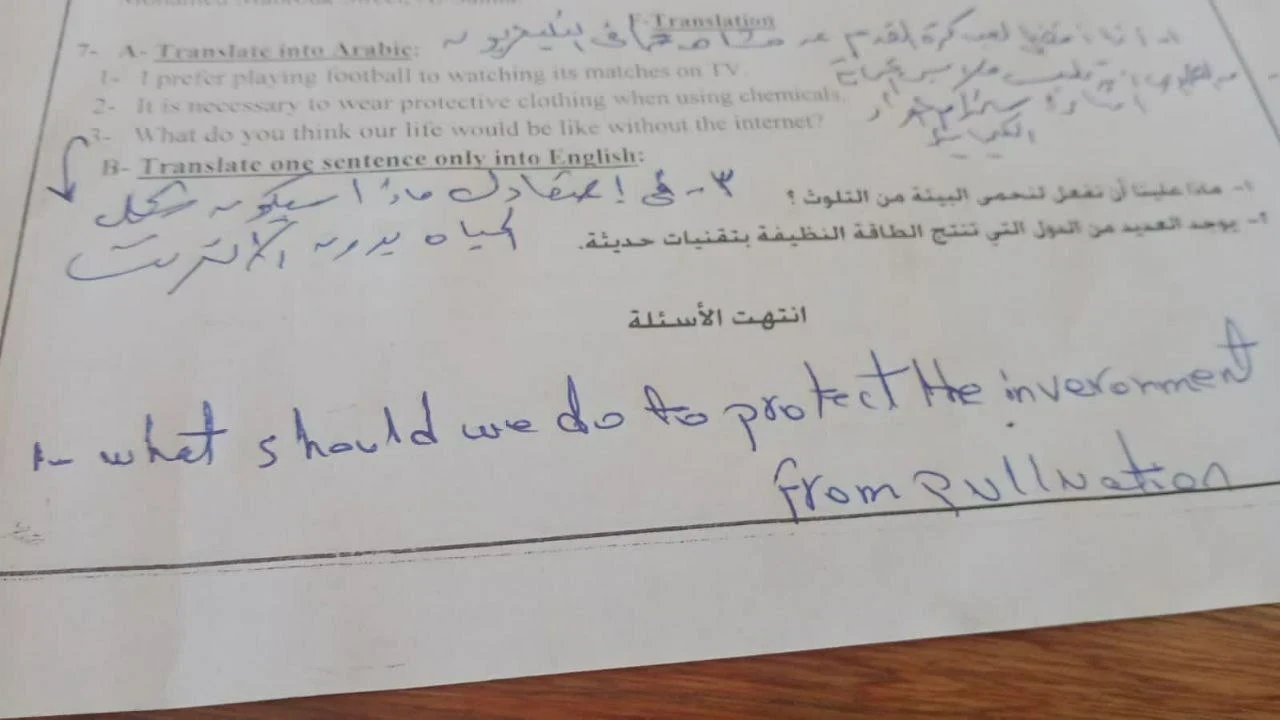 F-Translation
7- A- Translate into Arabic:
١- انا افضل لعب كرة القدم عن مشاهدتها في التليفزيون
1- I prefer playing football to watching its matches on TV.
2- It is necessary to wear protective clothing when using chemicals.
3- What do you think our life would be like without the internet?
B- Translate one sentence only into English:
٣- في إعتقادك ماذا سيكون شكل
الحياه بدون الانترنت
١- ماذا علينا أن نفعل لنحمي البيئة من التلوث ؟
٢- يوجد العديد من الدول التي تنتج الطاقة النظيفة بتقنيات حديثة.
انتهت الأسئلة
1- what should we do to protect the inveronment
from pullution